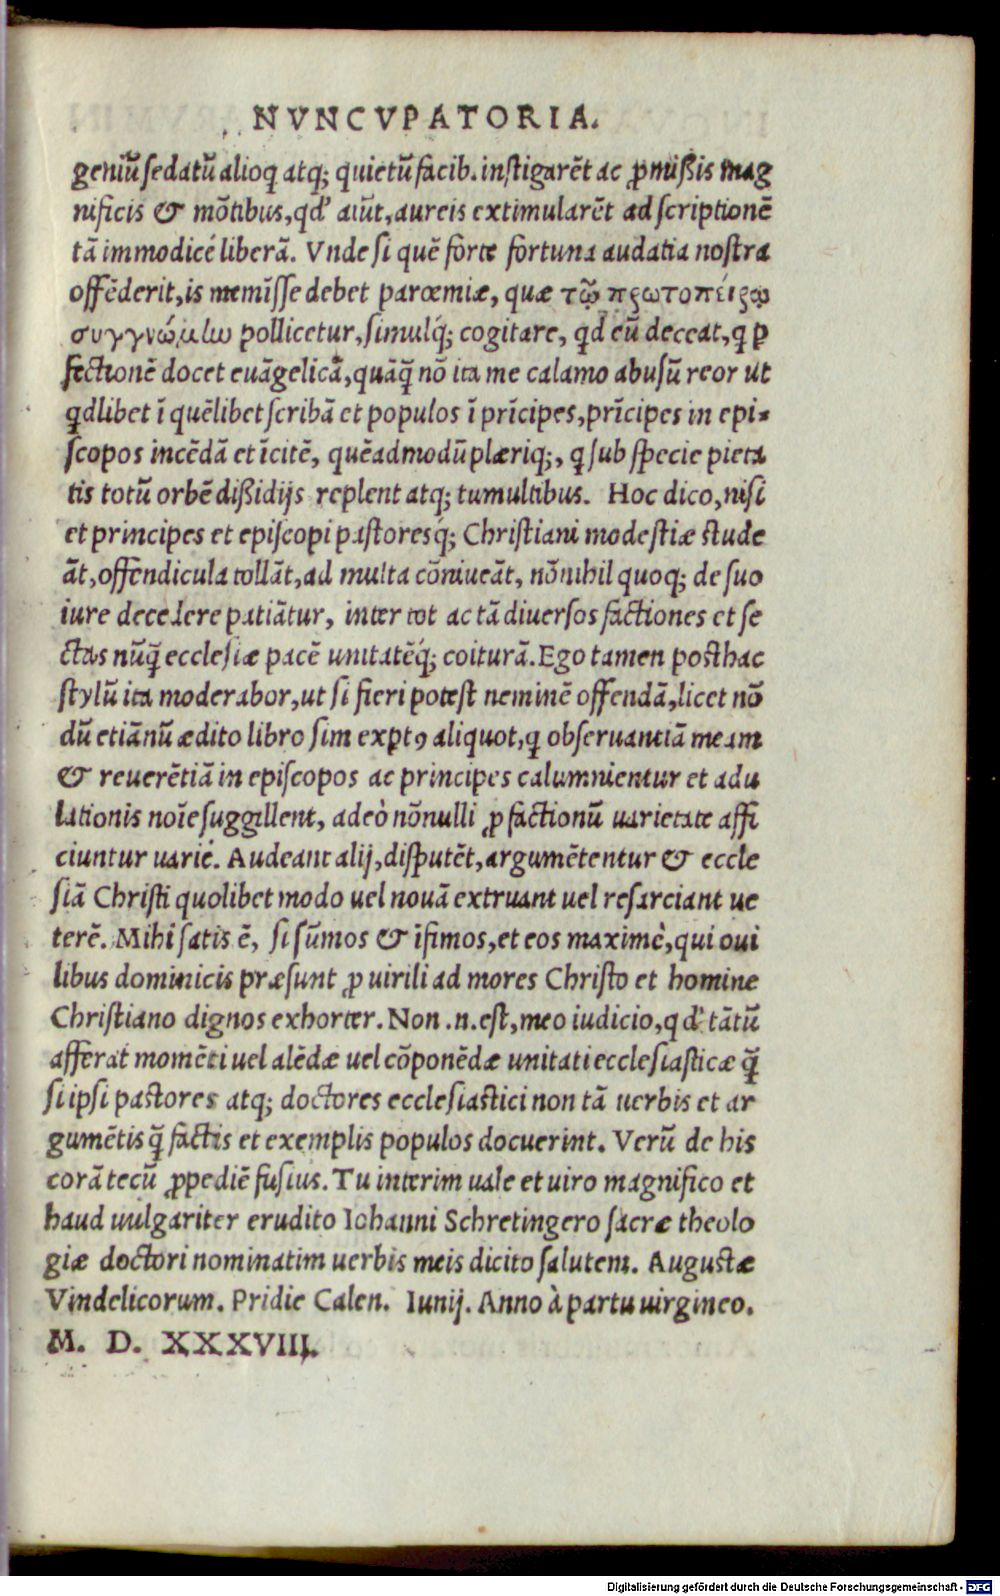 NVNCVPATORIA.
geniũ sedatũ alioq̃ atq; quietũ facib. instigarẽt ac ꝓmißis mag
nificis & mõtibus, qd' aiũt, aureis extimularẽt ad scriptionẽ
tã immodicé liberã. Vnde si quẽ forte fortuna audatia nostra
offẽderit, is memĩsse debet parœmiæ, quæ τῷ πρωτοπείρῳ
συγγνώμlω pollicetur, simulq́; cogitare, qd eũ deceat, q ꝑ
fectionẽ docet euãgelicã, quãq̃ nõ ita me calamo abusũ reor ut
qdlibet ĩ quẽlibet scribã et populos ĩ prĩcipes, prĩcipes in epi-
scopos incẽdã et ĩcitẽ, quẽadmodũ plæriq;, q sub specie pieta
tis totũ orbẽ dißidijs replent atq; tumultibus. Hoc dico, nisi
et principes et episcopi pastoresq́; Christiani modestiæ stude
ãt, offendicula tollãt, ad multa cõniueãt, nõnihil quoq; de suo
iure decedere patiãtur, inter tot ac tã diuersos factiones et se
ctas nũq̃ ecclesiæ pacẽ unitatẽq́; coiturã. Ego tamen posthac
stylũ ita moderabor, ut si fieri potest neminẽ offendã, licet nõ
dũ etiãnũ ædito libro sim exꝑtꝯ aliquot, q obseruantiã meam
& reuerẽtiã in episcopos ac principes calumnientur et adu
lationis noĩe suggillent, adeò nõnulli ꝓ factionũ uarietate affi
ciuntur uarié. Audeant alij, disputẽt, argumẽtentur & eccle
siã Christi quolibet modo uel nouã extruant uel resarciant ue
terẽ. Mihi satis ẽ, si sũmos & ĩfimos, et eos maximè, qui oui
libus dominicis præsunt ꝓ uirili ad mores Christo et homine
Christiano dignos exhorter. Non .n. est, meo iudicio, qd' tãtũ
afferat momẽti uel alẽdæ uel cõponẽdæ unitati ecclesiasticæ q̃
si ipsi pastores atq; doctores ecclesiastici non tã uerbis et ar
gumẽtis q̃ factis et exemplis populos docuerint. Verũ de his
corã tecũ ꝓpediẽ fusius. Tu interim uale et uiro magnifico et
haud uulgariter erudito Iohanni Schretingero sacræ theolo
giæ doctori nominatim uerbis meis dicito salutem. Augustæ
Vindelicorum. Pridie Calen. Iunij. Anno à partu uirgineo.
M. D. XXXVIII.
Digitalisierung gefördert durch die Deutsche Forschungsgemeinschaft - DFG